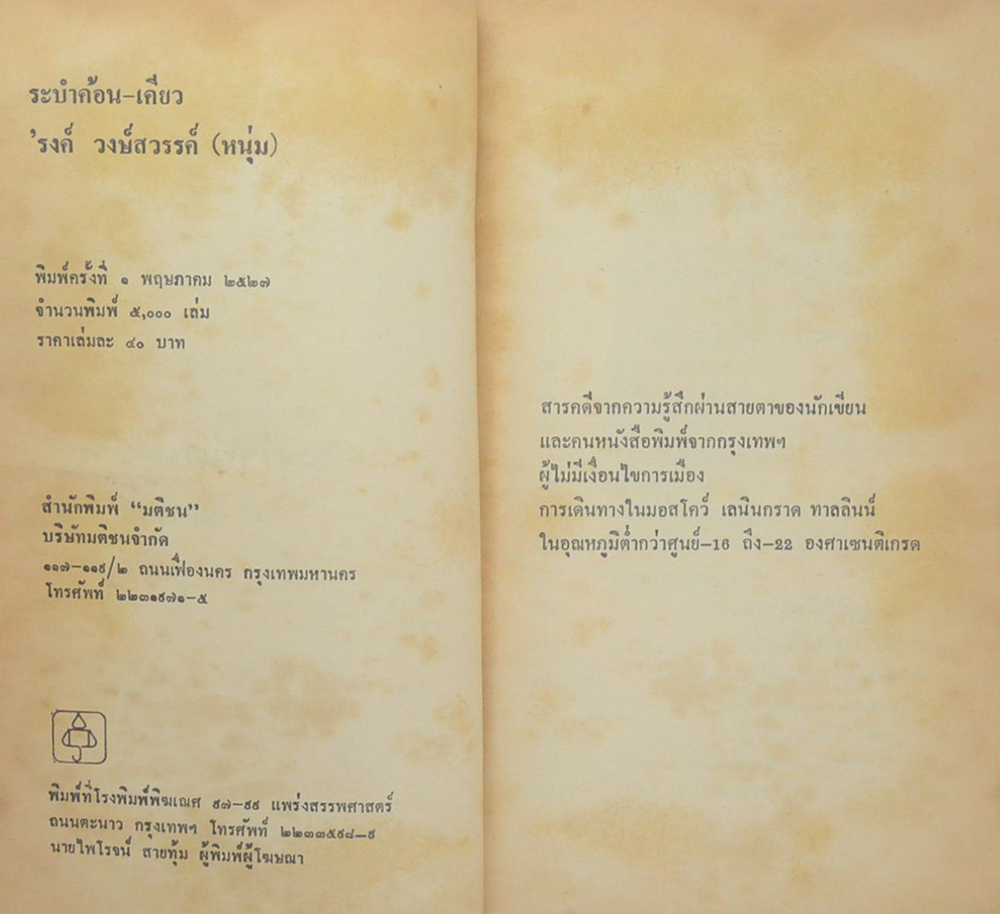 ระบำค้อน-เคียว
'รงค์ วงษ์สวรรค์ (หนุ่ม)
พิมพ์ครั้งที่ ๑ พฤษภาคม ๒๕๒๗
จำนวนพิมพ์ ๕,๐๐๐ เล่ม
ราคาเล่มละ ๔๐ บาท
สำนักพิมพ์ “มติชน”
บริษัทมติชนจำกัด
๑๑๗-๑๑๙/๒ ถนนเฟื่องนคร กรุงเทพมหานคร
โทรศัพท์ ๒๒๓๑๙๗๑-๕
พิมพ์ที่โรงพิมพ์พิฆเณศ ๙๗-๙๙ แพร่งสรรพศาสตร์
ถนนตะนาว กรุงเทพฯ โทรศัพท์ ๒๒๓๓๕๙๘-๙
นายไพโรจน์ สายทุ้ม ผู้พิมพ์ผู้โฆษณา
สารคดีจากความรู้สึกผ่านสายตาของนักเขียน
และคนหนังสือพิมพ์จากกรุงเทพฯ
ผู้ไม่มีเงื่อนไขการเมือง
การเดินทางในมอสโคว์ เลนินกราด ทาลลินน์
ในอุณหภูมิต่ำกว่าศูนย์-16 ถึง-22 องศาเซนติเกรด